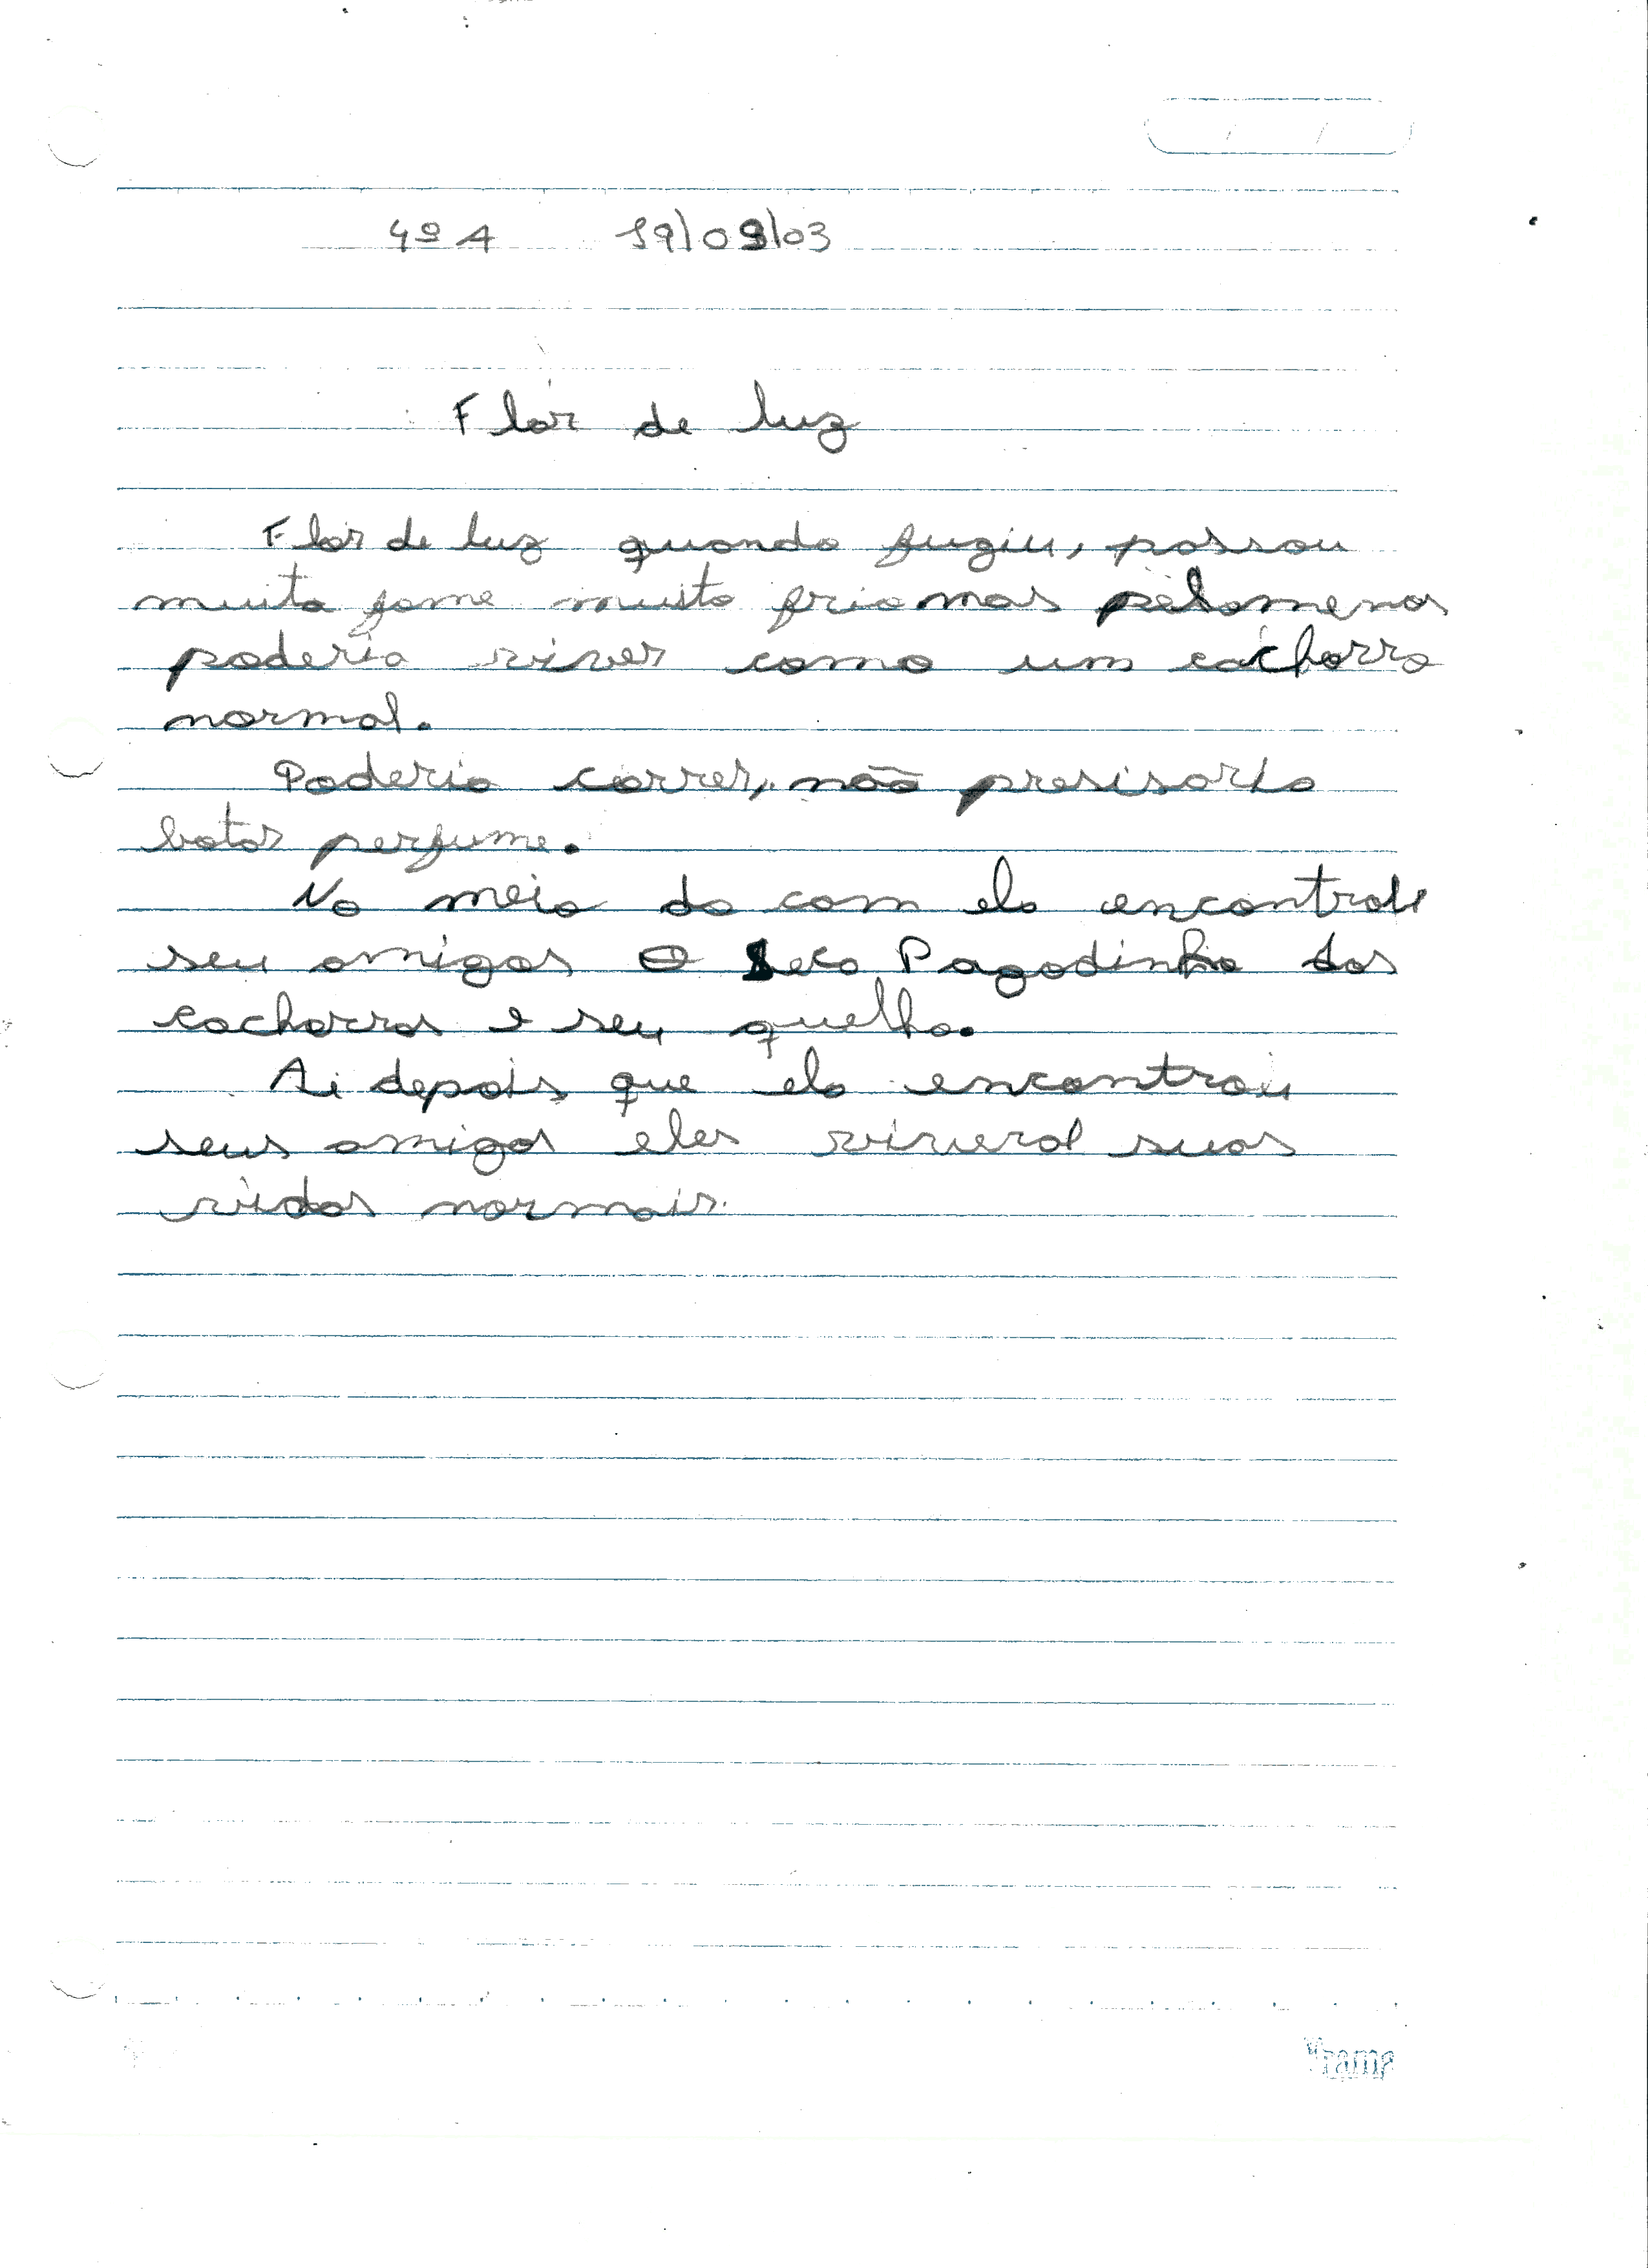 4º A 19/09/03
Flor de luz
Flor de luz quando fugiu, passou
muita fome muito frio mas pelomenos
poderia viver como um cachorro
normal.
Poderia correr, não presisaria
botar perfume.
No meio do com ela encontrou
seu amigos O Seco Pagodinho dos
cachorros e seu quelho.
Ai depois que ela encontrou
seus amigos eles viveral suas
vidas normais.